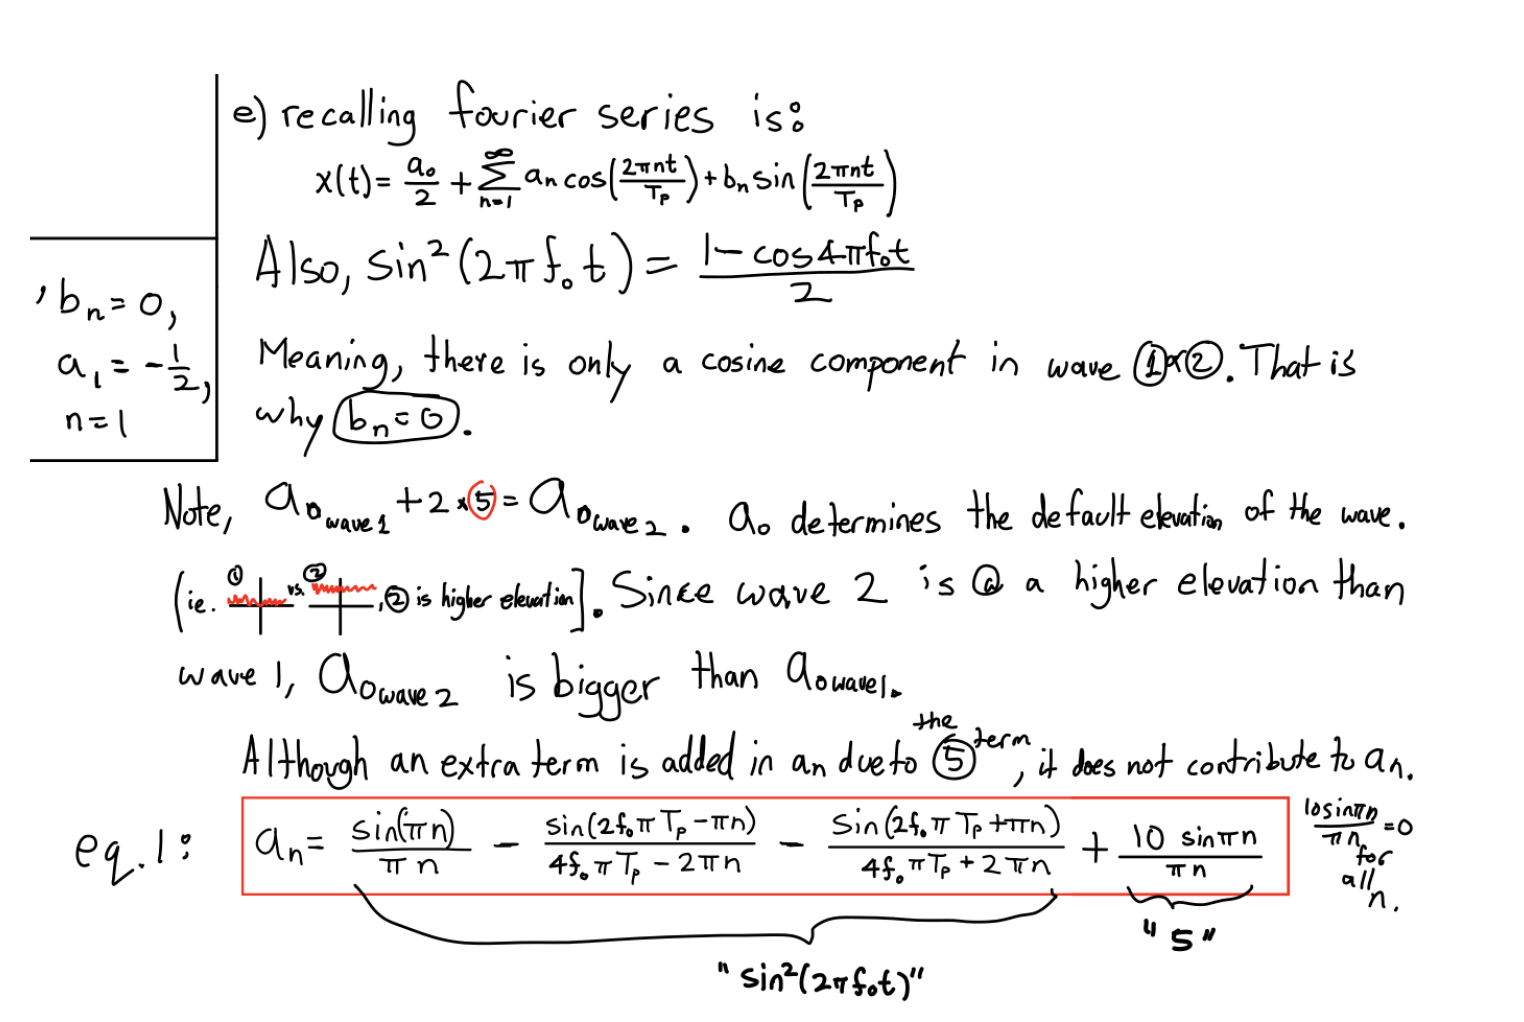 e) recalling fourier series is:
x(t) = a₀/2 + ∑_{n=1}^{∞} aₙ cos(2πnt/Tₚ) + bₙ sin(2πnt/Tₚ)
Also, sin²(2πf₀t) = (1 - cos4πf₀t)/2
, bₙ = 0,
a₁ = -1/2,
n = 1
Meaning, there is only a cosine component in wave ①&②. That is
why bₙ = 0.
Note, a₀ wave 1 + 2 × 5 = a₀ wave 2. a₀ determines the default elevation of the wave.
(ie. ① vs. ②, ② is higher elevation]. Since wave 2 is @ a higher elevation than
wave 1, a₀ wave 2 is bigger than a₀ wave 1.
Although an extra term is added in an due to the ⑤ term, it does not contribute to aₙ.
eq. 1: aₙ = sin(πn)/πn - sin(2f₀πTₚ - πn)/(4f₀πTₚ - 2πn) - sin(2f₀πTₚ + πn)/(4f₀πTₚ + 2πn) + 10 sinπn/πn
10sinπn/πn = 0
for
all
n.
"sin²(2πf₀t)"
"5"